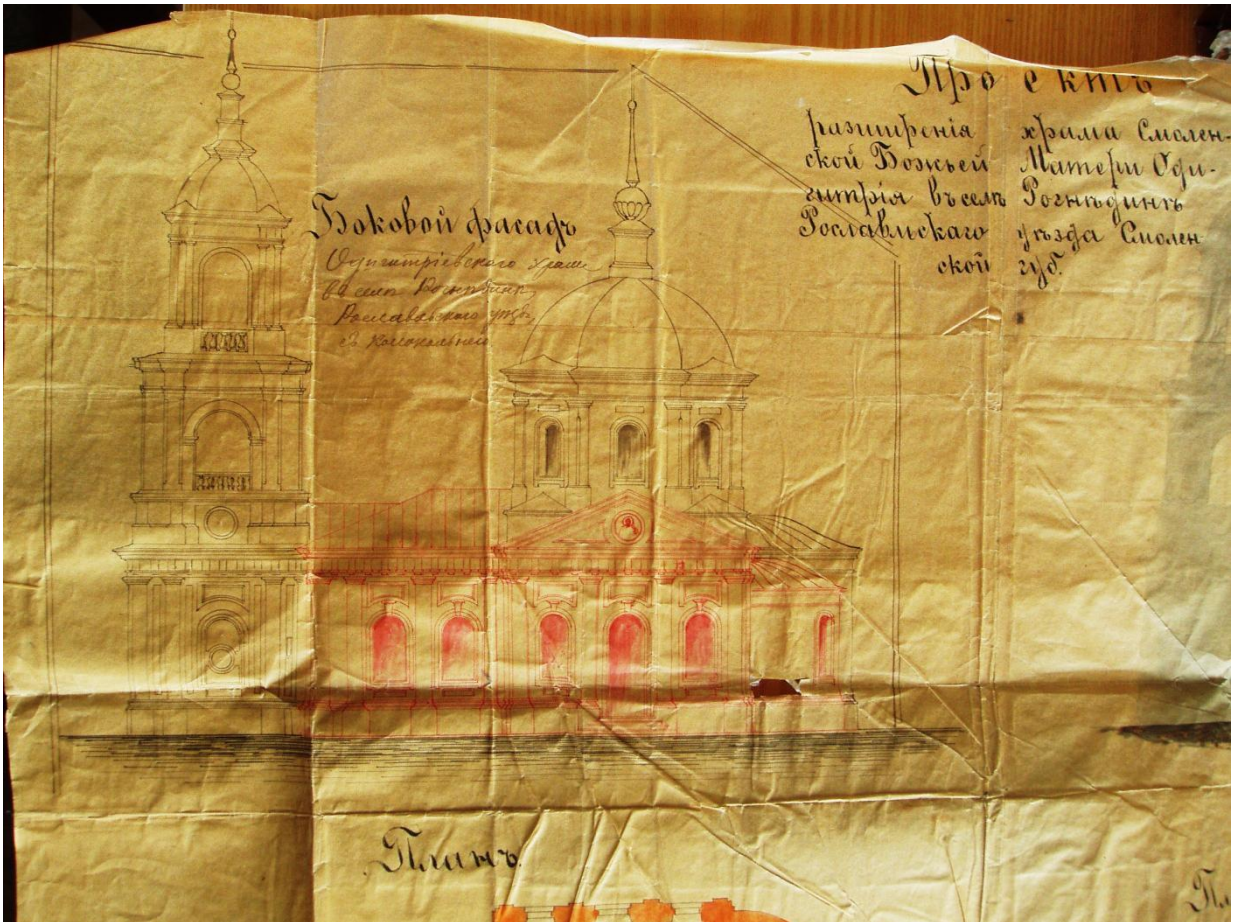 Проектъ
разширенія храма Смолен-
ской Божьей Матери Оди-
гитрія въ селѣ Рогнѣдинѣ
Рославльскаго уѣзда Смолен
ской губ.
Боковой фасадъ
Одигитріевскаго храма
въ селѣ Рогнѣдинѣ,
Рославльскаго уѣзда,
съ колокольнею
Планъ.